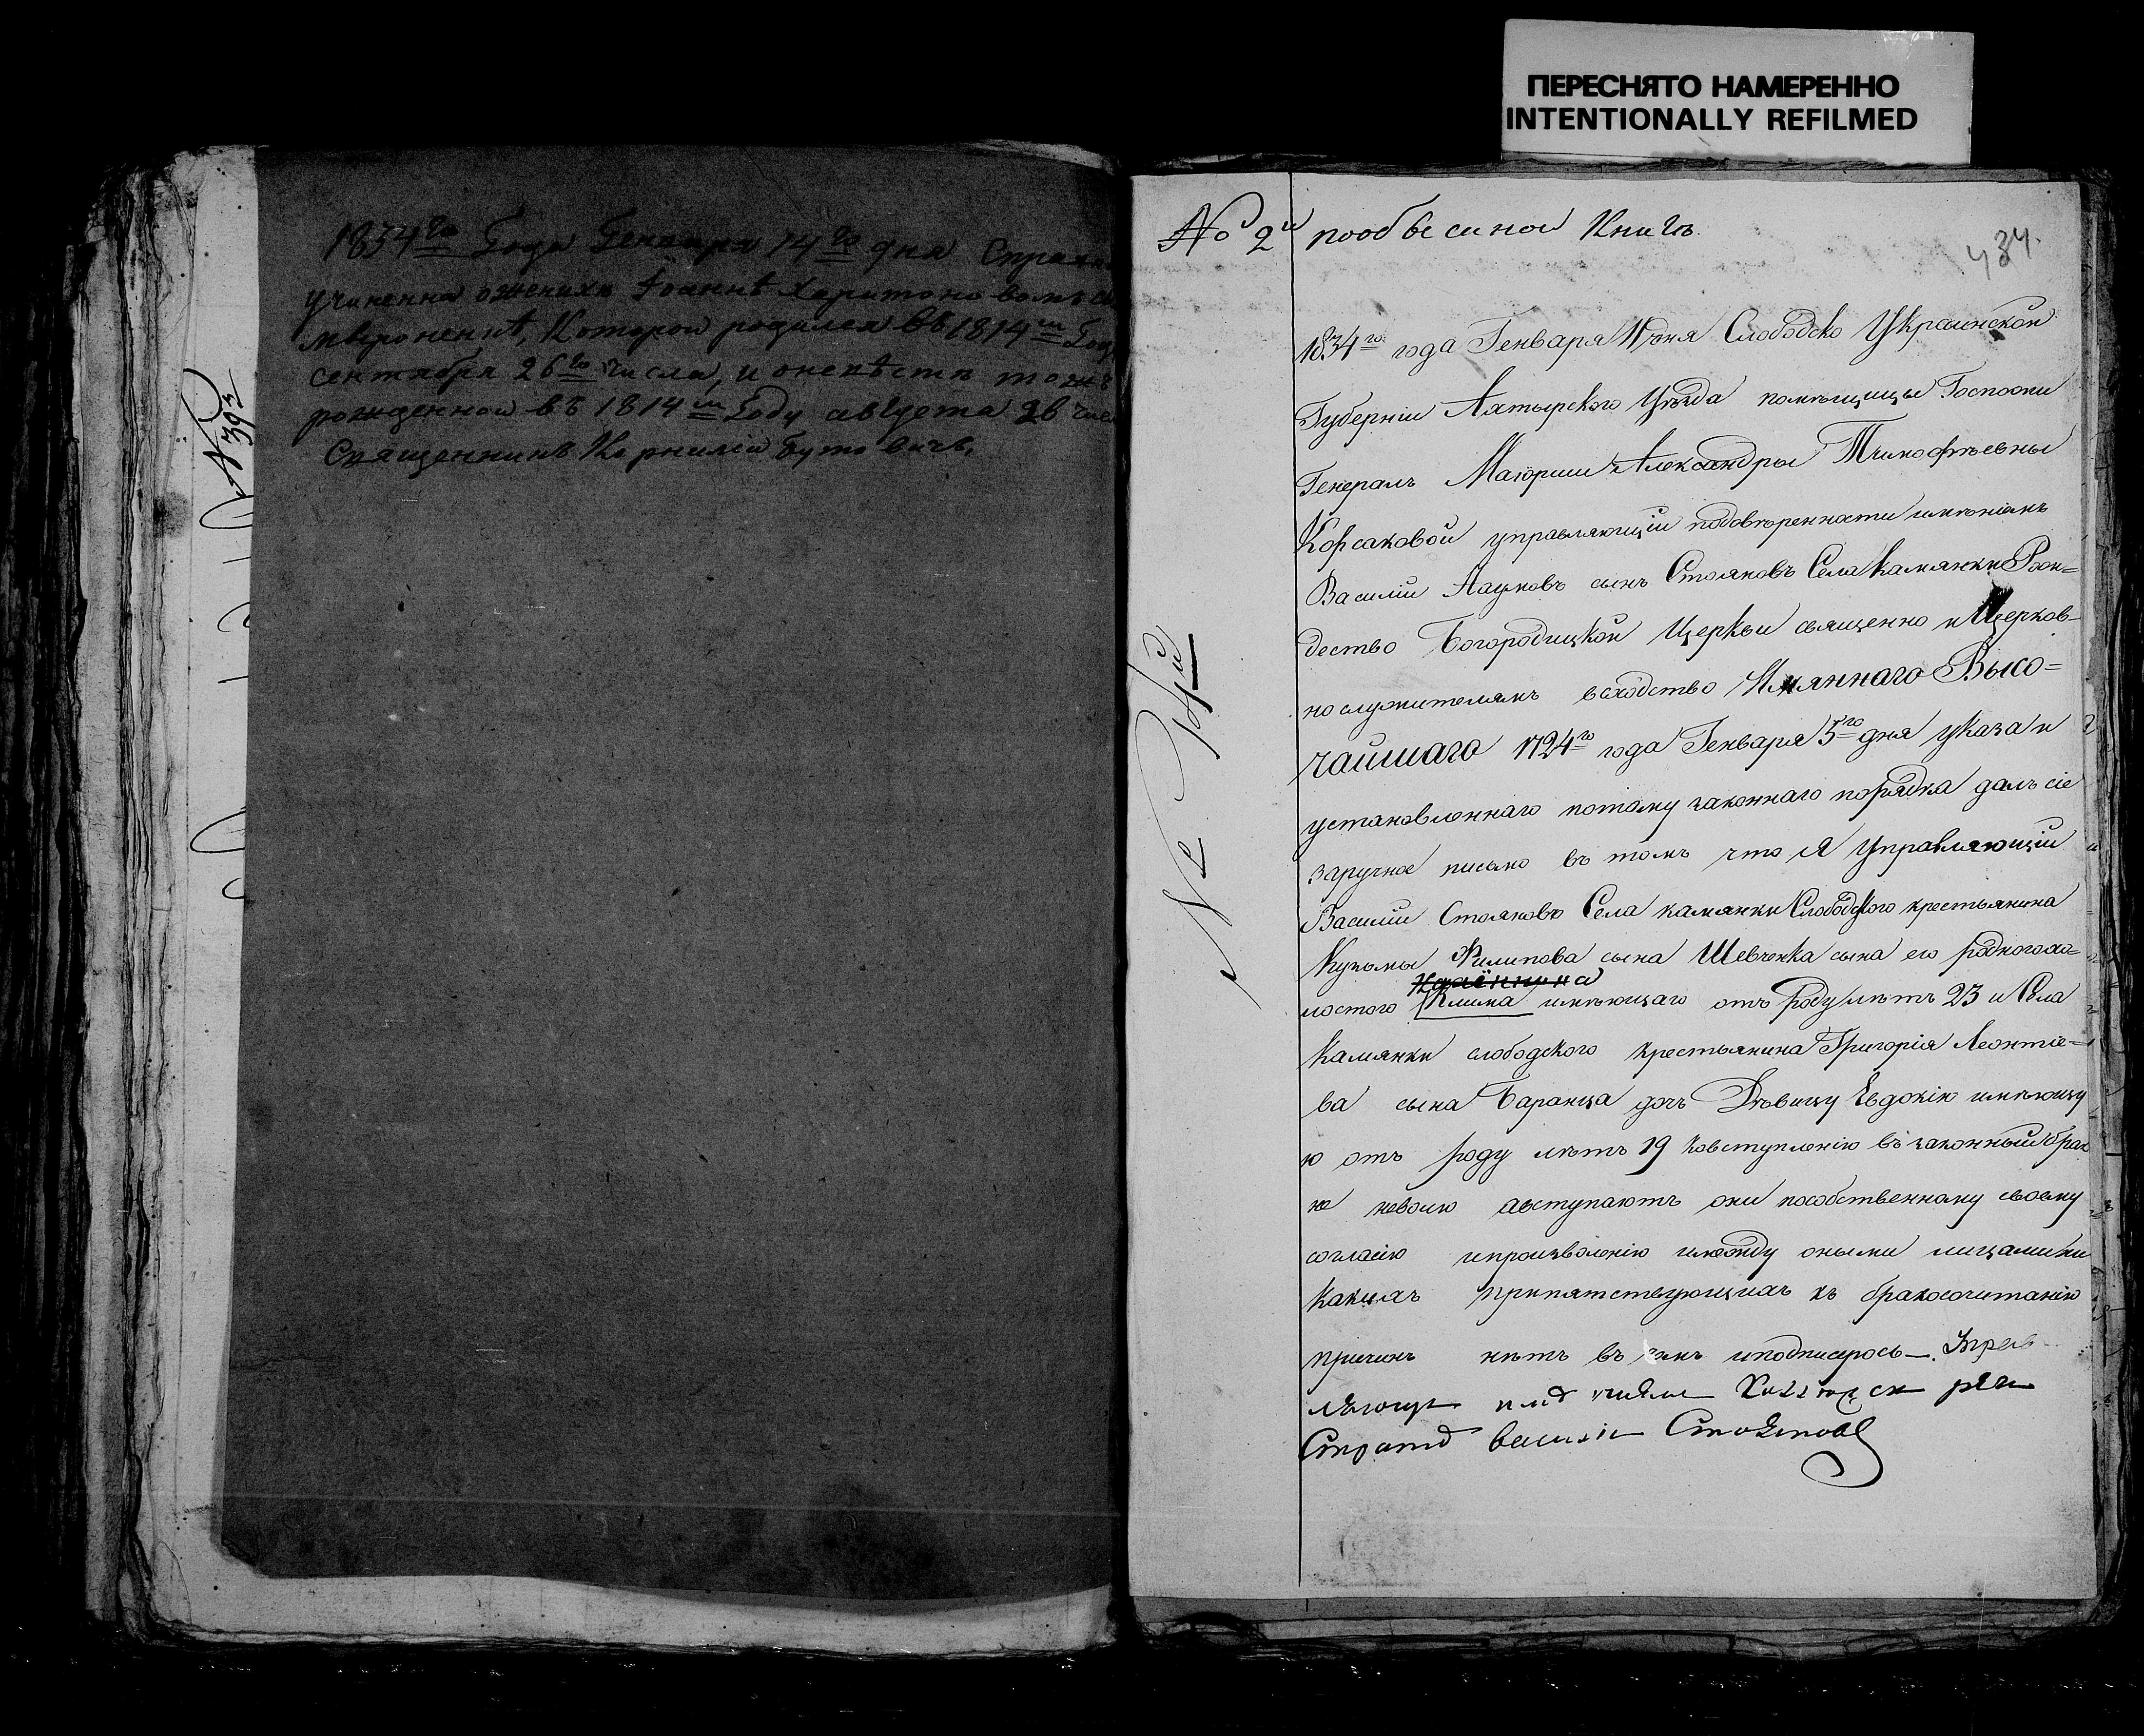 ПЕРЕСНЯТО НАМЕРЕННО
INTENTIONALLY REFILMED
1834го Года Генваря 14го дня Справка
учиненна оженихѣ Іоаннѣ Харитонова
мѣроненкѣ, Которои родился въ 1814м Году
сентября 26го числа, и оневѣстѣ
рожденнои въ 1814м Году августа 26 чис
Священникъ Корнилій Бутовичъ.
№ 392
№ 2й пообысинои Книгѣ.
434.
1834го года Генваря дня Слободско Украинской
Губерніи Ахтырского Уѣзда помѣщицы Госпожи
Генералъ Маіорши Александры Тимофѣевны
Корсаковой управляющій подовѣренности имѣніемъ
Василій сынъ Стояновъ Села Камянки Рож=
дество Богородицкой Церкви священно и Церков-
нослужителямъ всходство Имяннаго Высо=
чайшаго 1724го года Генваря 5го дня указа и
установленнаго потому законнаго порядка далъ сіе
заручное письмо въ томъ что я Управляющій
Василій Стояновъ Села камянки Слободского крестьянина
Кузьмы Филипова сына Шевченка сына его родного хо=
лостого Клима имѣющаго отъ роду лѣтъ 23 и Села
Камянки слободского крестьянина Григорія Леонтіе=
ва сына Баранца дочь Дѣвицу Евдокію имѣющу
ю отъ роду лѣтъ 19 ковступленію въ законный брак
не неволю авступаютъ они пособственному своему
согласію ипроизволенію имежду оными лицами ни
какихъ припятствующихъ къ бракосочетанію
причинъ нѣтъ въ чемъ иподписуюсь —
Василій Стояновъ